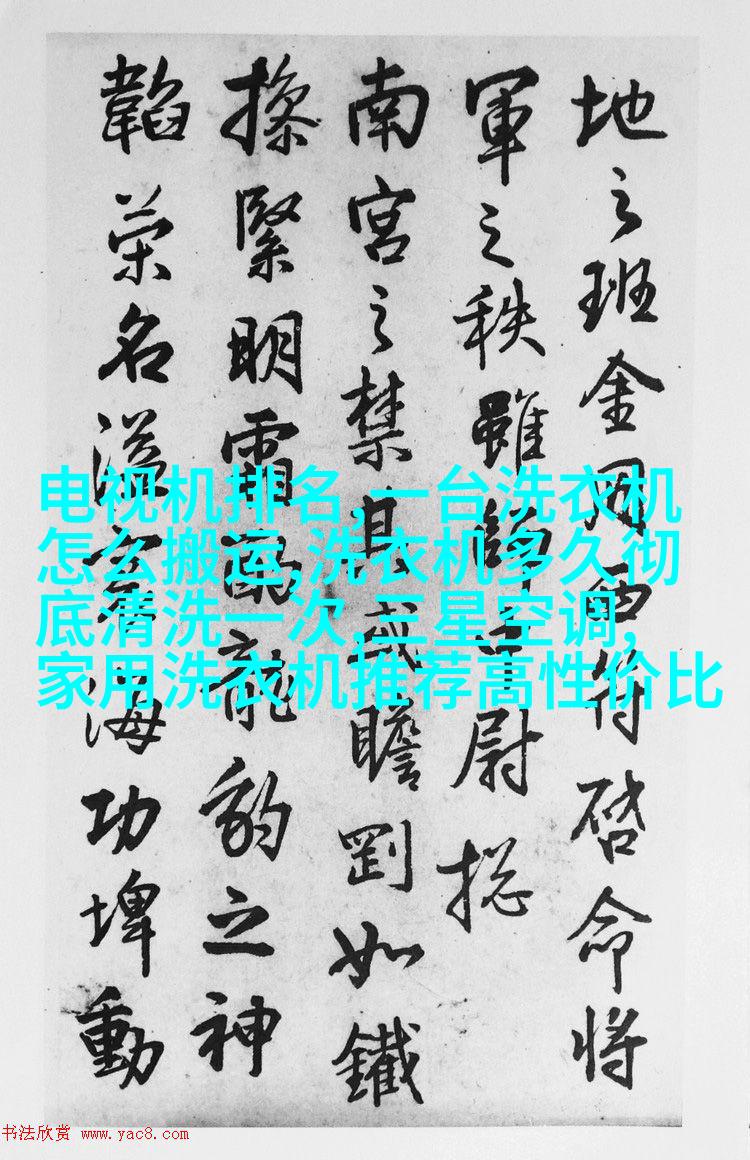 地之班金符啓命将
軍之秩雖尉揔
南宮之禁其瞻剛如鐵
操緊明霜龍豹之神
韜榮名溢海功埤動
电视机排名,一台洗衣机
怎么搬运,洗衣机多久彻
底清洗一次,三星空调,
家用洗衣机推荐高性价比
书法欣赏 www.yac8.com